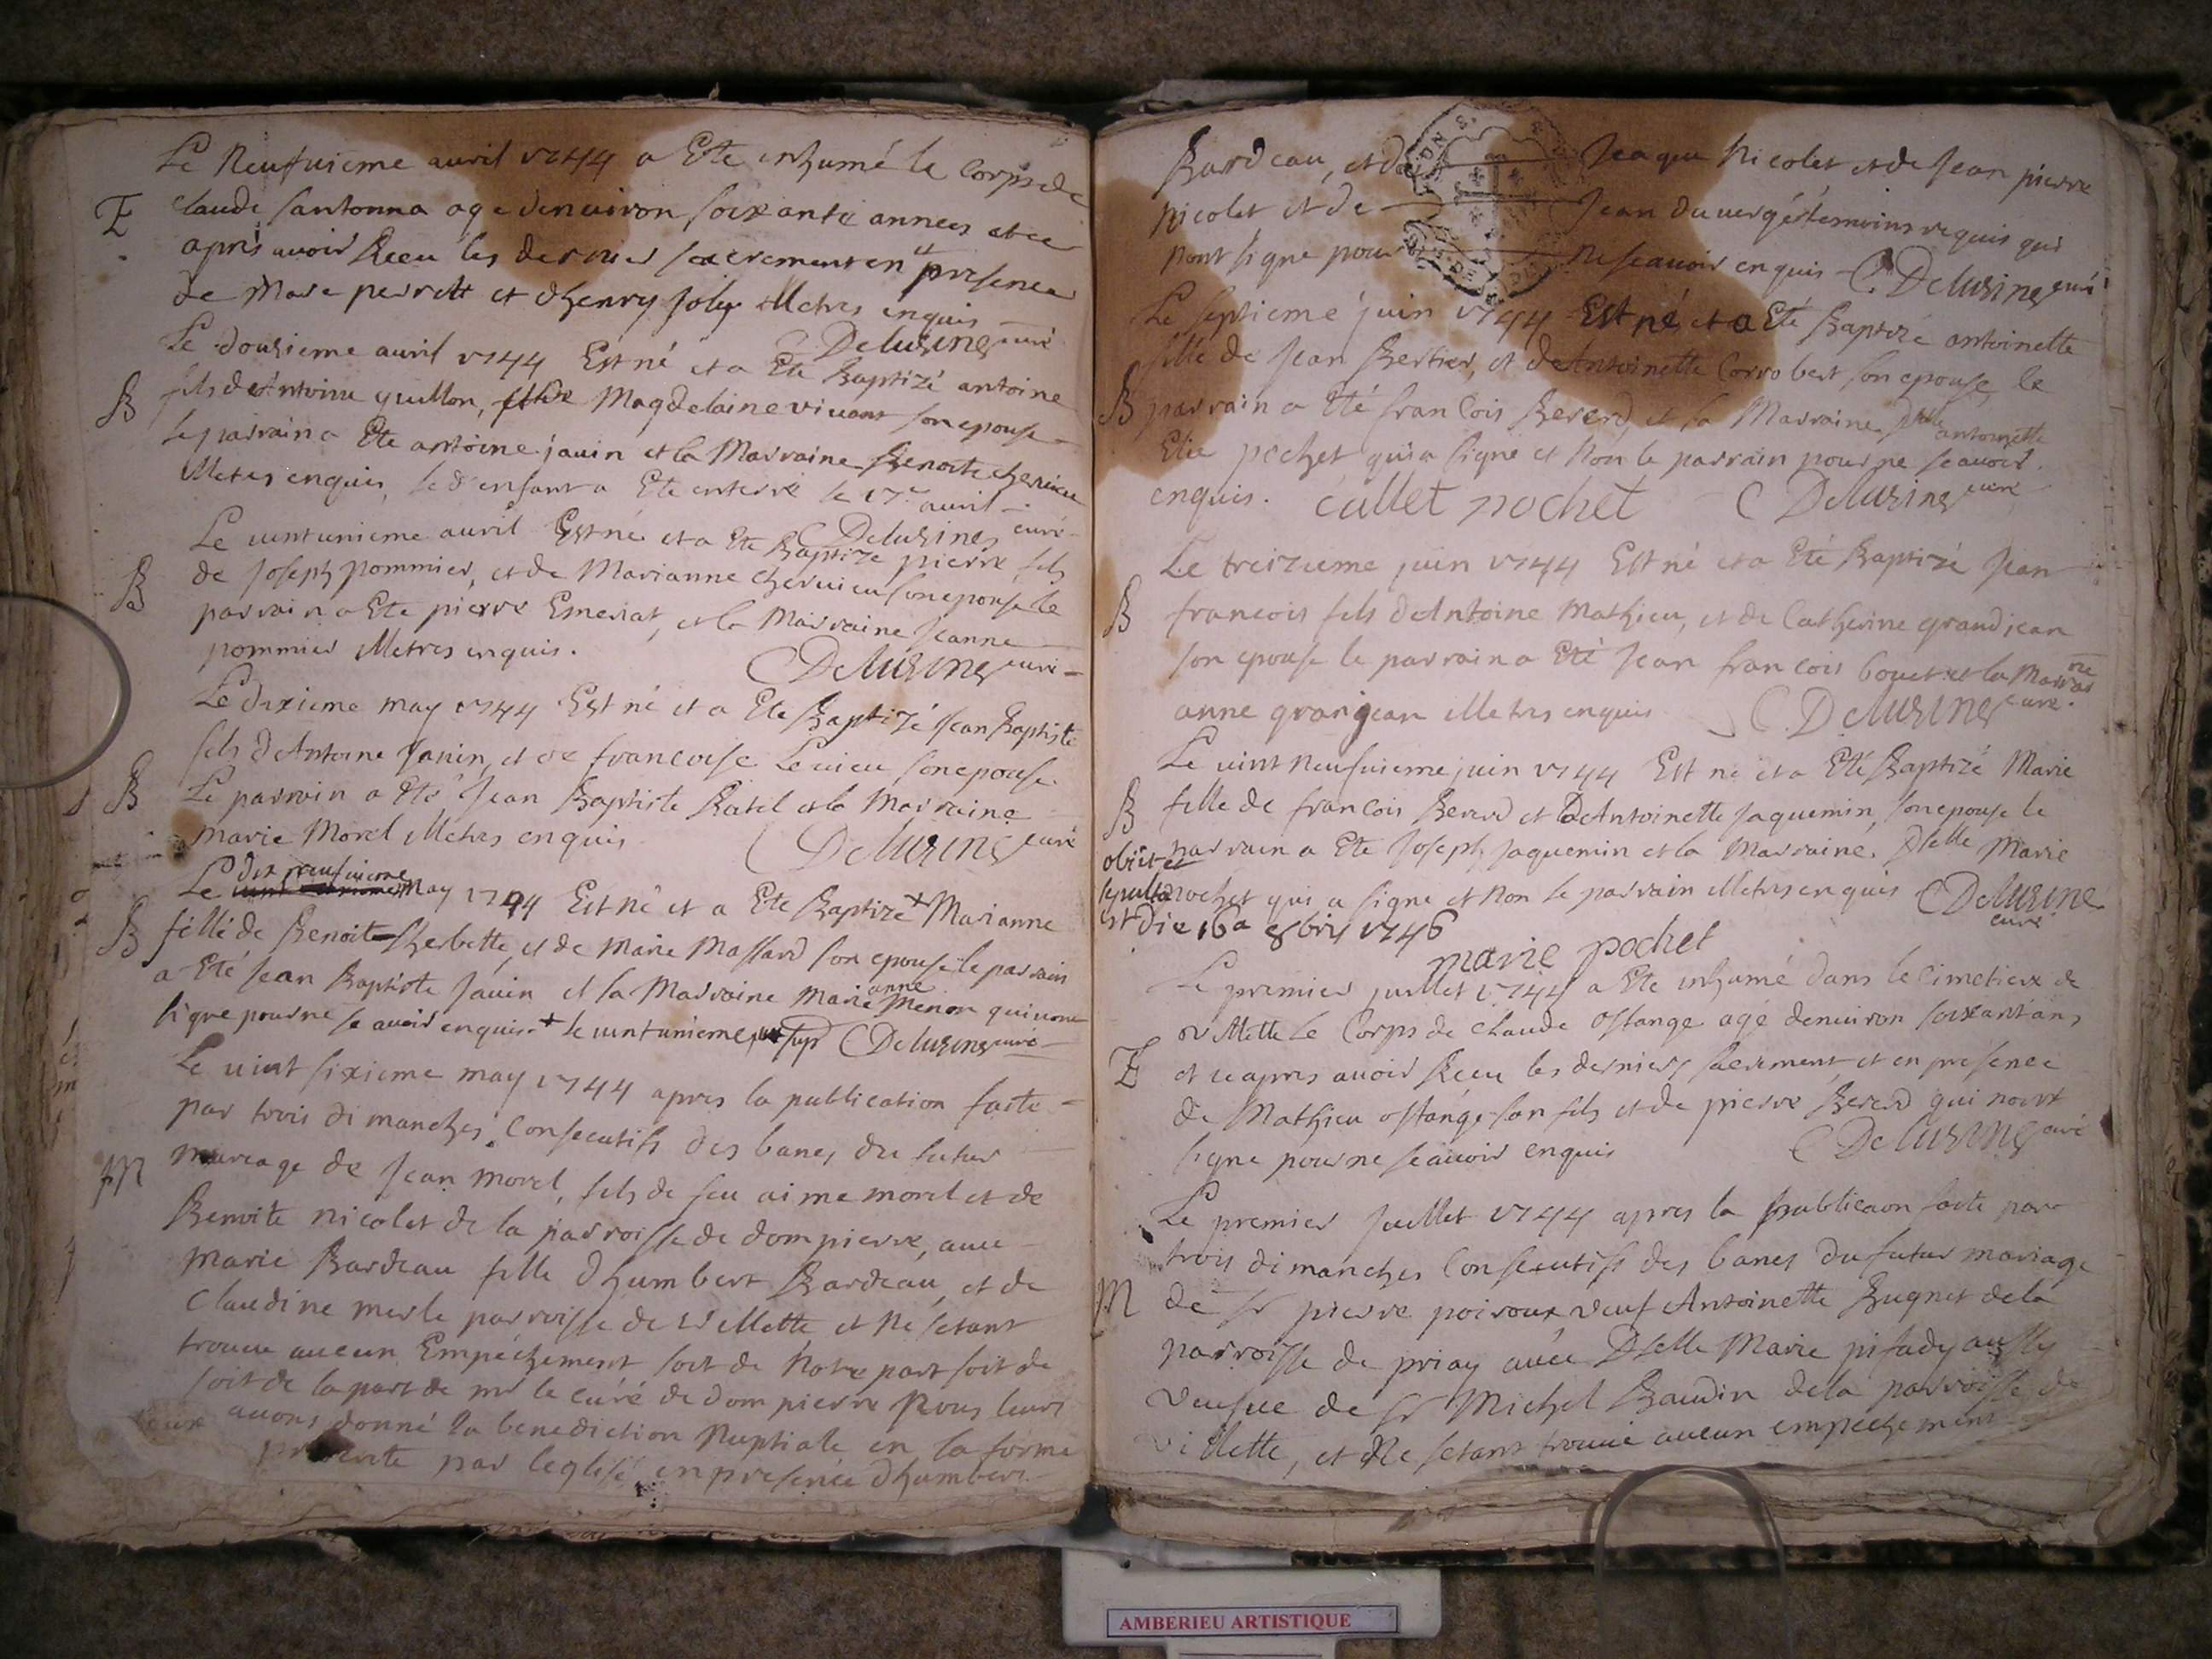 Le Neufuieme auril 1744 a Ete inhumé le Corps de
E
claude santonna age denuiron soixante annees et ce
apris auoir Receu les derniers sacrement en presence
de Marc perrett et d'henry Joly illetres enquis
Delusines curé
Le dousieme auril 1744 Est né et a Ete Baptizé antoine
B
fils d'Antoine guillon, Magdelaine viuant son epouse
le parrain a Ete antoine jauin et la Marraine Benoite cheruieu
illetres enquis, led enfant a Ete enterré le 17e auril
Delusines curé
Le uintunieme auril Est né et a Ete Baptize pierre fils
B
de Joseph pommier, et de Marianne cheruieu son epouse le
parrain a Ete pierre Emeriat, et la Marraine Jeanne
pommier illetres enquis.
Delusines curé
Le dixieme may 1744 Est né et a Ete Baptizé Jean Baptiste
fils d'Antoine Janin, et de francoise Leuieu son epouse
B
Le parrain a Eté Jean Baptiste Ratel et la Marraine
marie Morel illetres enquis
Delusines curé
dix neufuieme
Le May 1744 Est né et a Ete Baptizé + Marianne
B
fille de Benoit Cherbette, et de Marie Massard son epouse le parrain
a Eté Jean Baptiste Jauin et la Marraine Marie anne Menon qui nont
signe pour ne sc auoir enquis. + le uintunieme Delusines curé
Le uint sixieme may 1744 apres la publication faite
par trois dimanches Consecutifs des bancs du futur
M
mareage de Jean morel, fils de feu aime morel et de
Benoite nicolet de la parroisse de dompierre, auec
marie Bardeau fille d'humbert Bardeau, et de
Claudine merle parroisse de Villette et ne setant
trouue aucun Empechement soit de Notre part soit de
soit de la part de mr le curé de dompierre Nous leurs
auons donné la benediction Nuptiale en la forme
prescrite par leglise en presence d'humbert
Bardeau, et de Jaque Nicolet et de Jean pierre
nicolet et de Jean du uergér temoins requis qui
nont signe pour ne scauoir enquis C. Delusines curé
Le septieme juin 1744 Est né, et a Eté Baptizé antoinette
fille de Jean Bertier, et de Antoinette Corrobert son epouse, le
B
parrain a Eté francois Bererd, et la Marraine Dlle antoinette
Elie pochet qui a signe et non le parrain pour ne scauoir
enquis. callet pochet C Delusines curé
Le treizieme juin 1744 Est né et a Eté Baptizé Jean
B
francois fils d'Antoine Mathieu, et de Catherine grandjean
son epouse le parrain a Eté Jean francois bouet et la Marrai ne
anne granjean illetres enquis C. Delusines curé
Le uint neufuieme juin 1744 Est ne et a Eté Baptizé Marie
B
fille de francois Bererd et de Antoinette Jaquemin, son epouse le
obiit et
parrain a Ete Joseph Jaquemin et la Marraine. Dlle Marie
sepulta
pochet qui a signe et non le parrain illetres enquis C Delusines
curé
est die 16a 8bris 1746
marie pochet
Le premier juillet 1744 a Ete inhumé dans le cimetiere de
Villette le Corps de claude ostange agé denuiron soixant ans,
E
et ce apres auoir Receu les derniers sacrement, et en presence
de Mathieu ostange son fils et de pierre Bererd qui nont
signe pour ne scauoir enquis C Delusines curé
Le premier Juillet 1744 apres la publicaon faite par
trois dimanches Consecutifs des bancs du futur mariage
M
de sr pierre poiroux veuf Antoinette Bugnet de la
parroisse de priay auec Dlelle Marie pisady aussy
veufue de sr Michel Baudin de la parroisse de
villette, et Ne setant trouué aucun empechement
AMBERIEU ARTISTIQUE